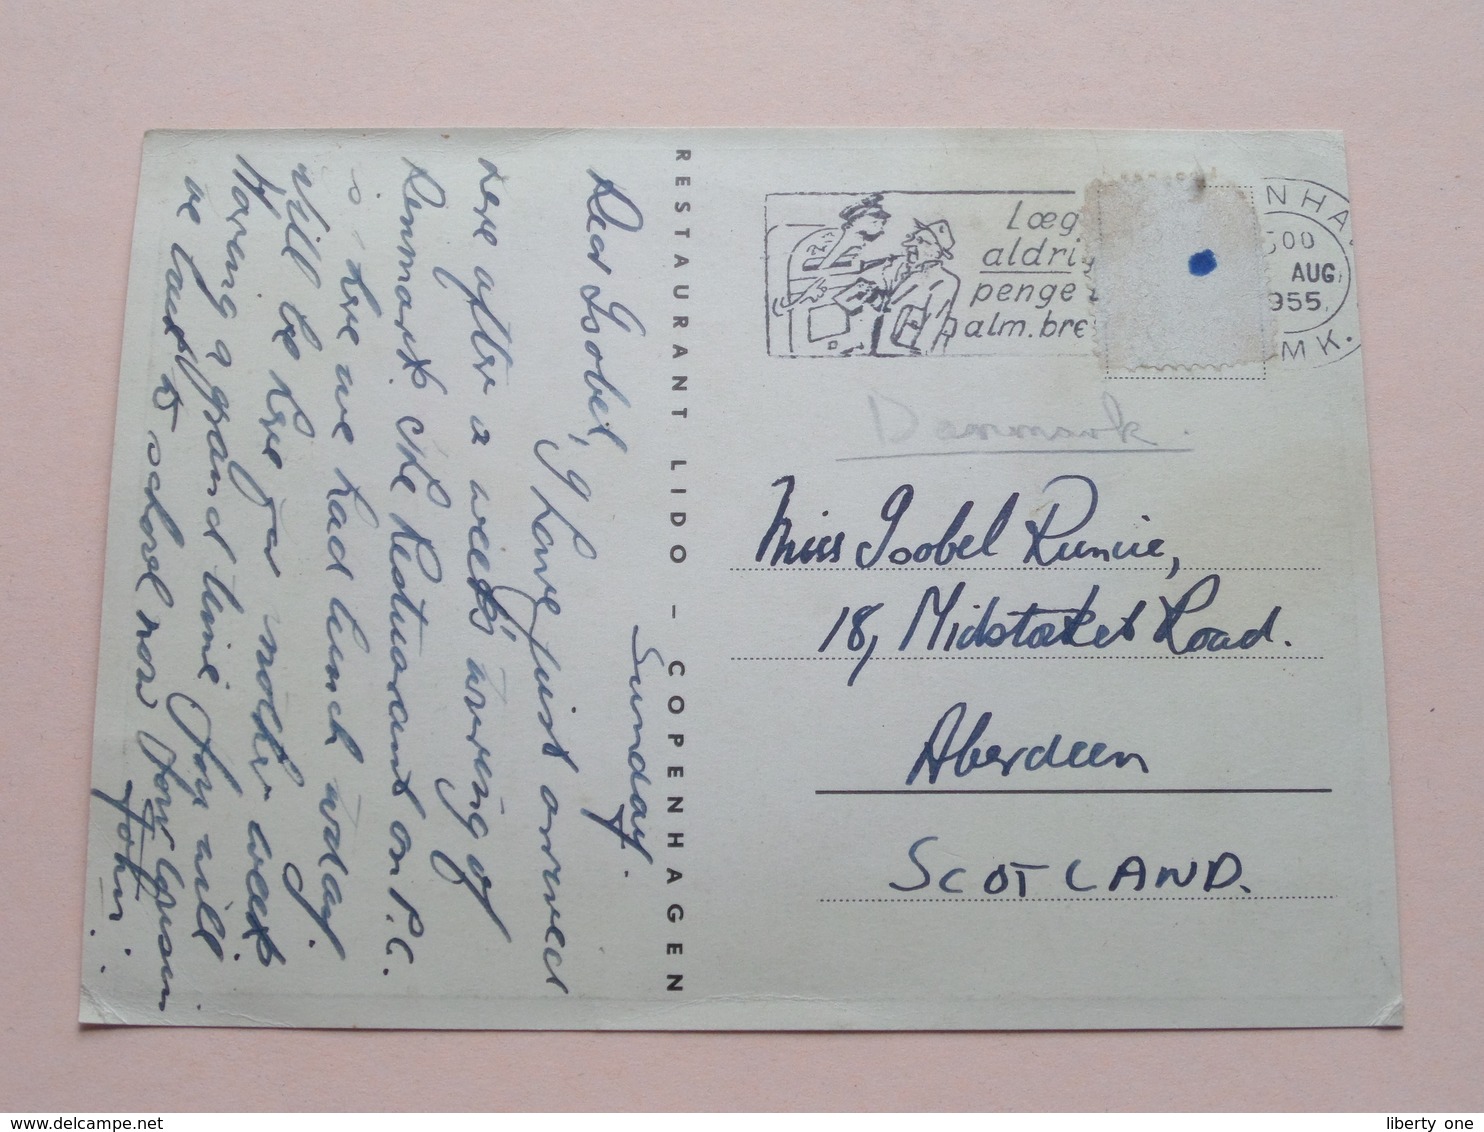 Sunday.
Dear Isobel,
I have just arrived
here after a week's touring of
Denmark. The Restaurant on P.C.
is where we had lunch today.
Will be here for another week
Having a grand time. You will
be back to school now. Your Cousin
John.
RESTAURANT LIDO - COPENHAGEN
Læg
aldri
penge
alm. bre
NHA
500
AUG
955
MK.
Denmark.
Miss Isobel Runcie,
18, Midstocket Road.
Aberdeen
SCOTLAND.
www.delcampe.net
liberty one